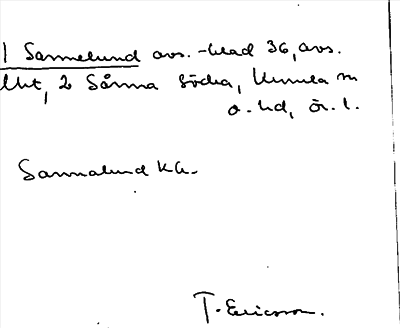 1 Sannelund avs.-blad 36, avs.
Utt, 2 Sånna Södra, Kumla sn
o. hd, ör. l.
Sannalund kA.
T. Ericsson.